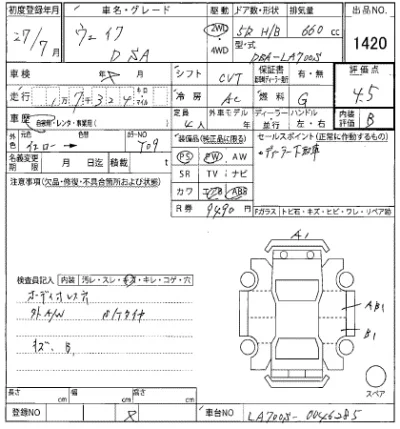 初度登録年月 車名・グレード 駆動 ドア数・形状 排気量 出品NO.
27/7月 ウェイク DSA 2WD 4WD 5D H/B 660 cc 1420
型・式 DBA-LA700S
車検 年 月 シフト CVT 保証書 有・無 評価点 4.5
走行 1万7千324 キロ マイル 冷房 AC 燃料 G
車歴 自家用・レンタ・事業用( ) 定員 4人 外車モデル 年 ディーラー 並行 ハンドル 左・右 内装評価 B
外色 イエロー→ 色替 カラーNO Y09 装備品(純正品に限る) セールスポイント(正常に作動するもの)
名義変更期限 月 日迄 積載 t PS PW AW
注意事項(欠品・修復・不具合箇所および状態) SR TV ナビ
カワ エアB ABS
R券 9490 円 Fガラス トビ石・キズ・ヒビ・ワレ・リペア跡
A1
検査員記入 内装 汚レ・スレ・キズ・キレ・コゲ・穴
オーディオレス
外A/W
キズ B1
AB1
B1
スペア
長さ cm 幅 cm 高さ cm
登録NO 車台NO LA700S-0046285